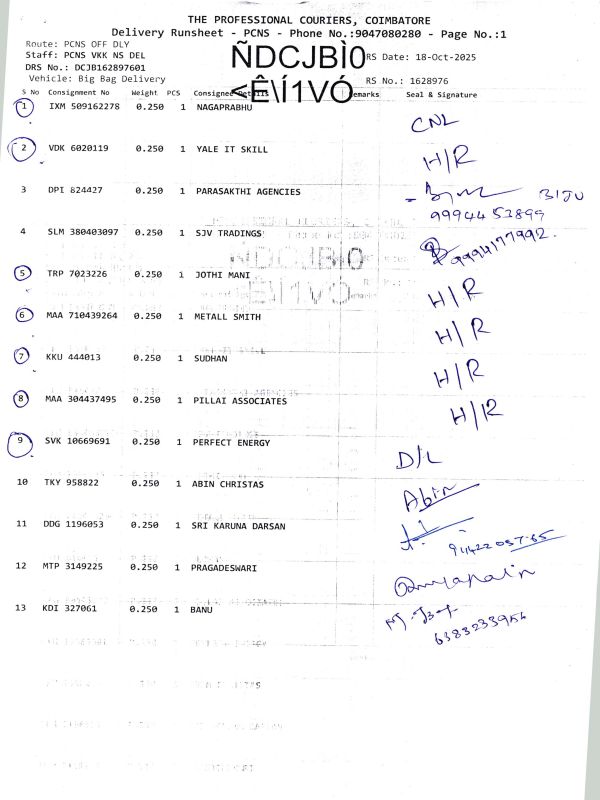 THE PROFESSIONAL COURIERS, COIMBATORE
Delivery Runsheet - PCNS - Phone No.:9047080280 - Page No.:1
Route: PCNS OFF DLY
Staff: PCNS VKK NS DEL
ÑDCJBÌ0
RS Date: 18-Oct-2025
DRS No.: DCJB162897601
Vehicle: Big Bag Delivery
<Ê\Í1VÓ
RS No.: 1628976
S No Consignment No Weight PCS Consignee Details Remarks Seal & Signature
1 IXM 509162278 0.250 1 NAGAPRABHU CNL
2 VDK 6020119 0.250 1 YALE IT SKILL H/R
3 DPI 824427 0.250 1 PARASAKTHI AGENCIES BIJU
9994453899
4 SLM 380403097 0.250 1 SJV TRADINGS 9994177992.
5 TRP 7023226 0.250 1 JOTHI MANI H/R
6 MAA 710439264 0.250 1 METALL SMITH H/R
7 KKU 444013 0.250 1 SUDHAN H/R
8 MAA 304437495 0.250 1 PILLAI ASSOCIATES H/R
9 SVK 10669691 0.250 1 PERFECT ENERGY D/L
10 TKY 958822 0.250 1 ABIN CHRISTAS Abin
11 DDG 1196053 0.250 1 SRI KARUNA DARSAN
12 MTP 3149225 0.250 1 PRAGADESWARI
13 KDI 327061 0.250 1 BANU
6383233956